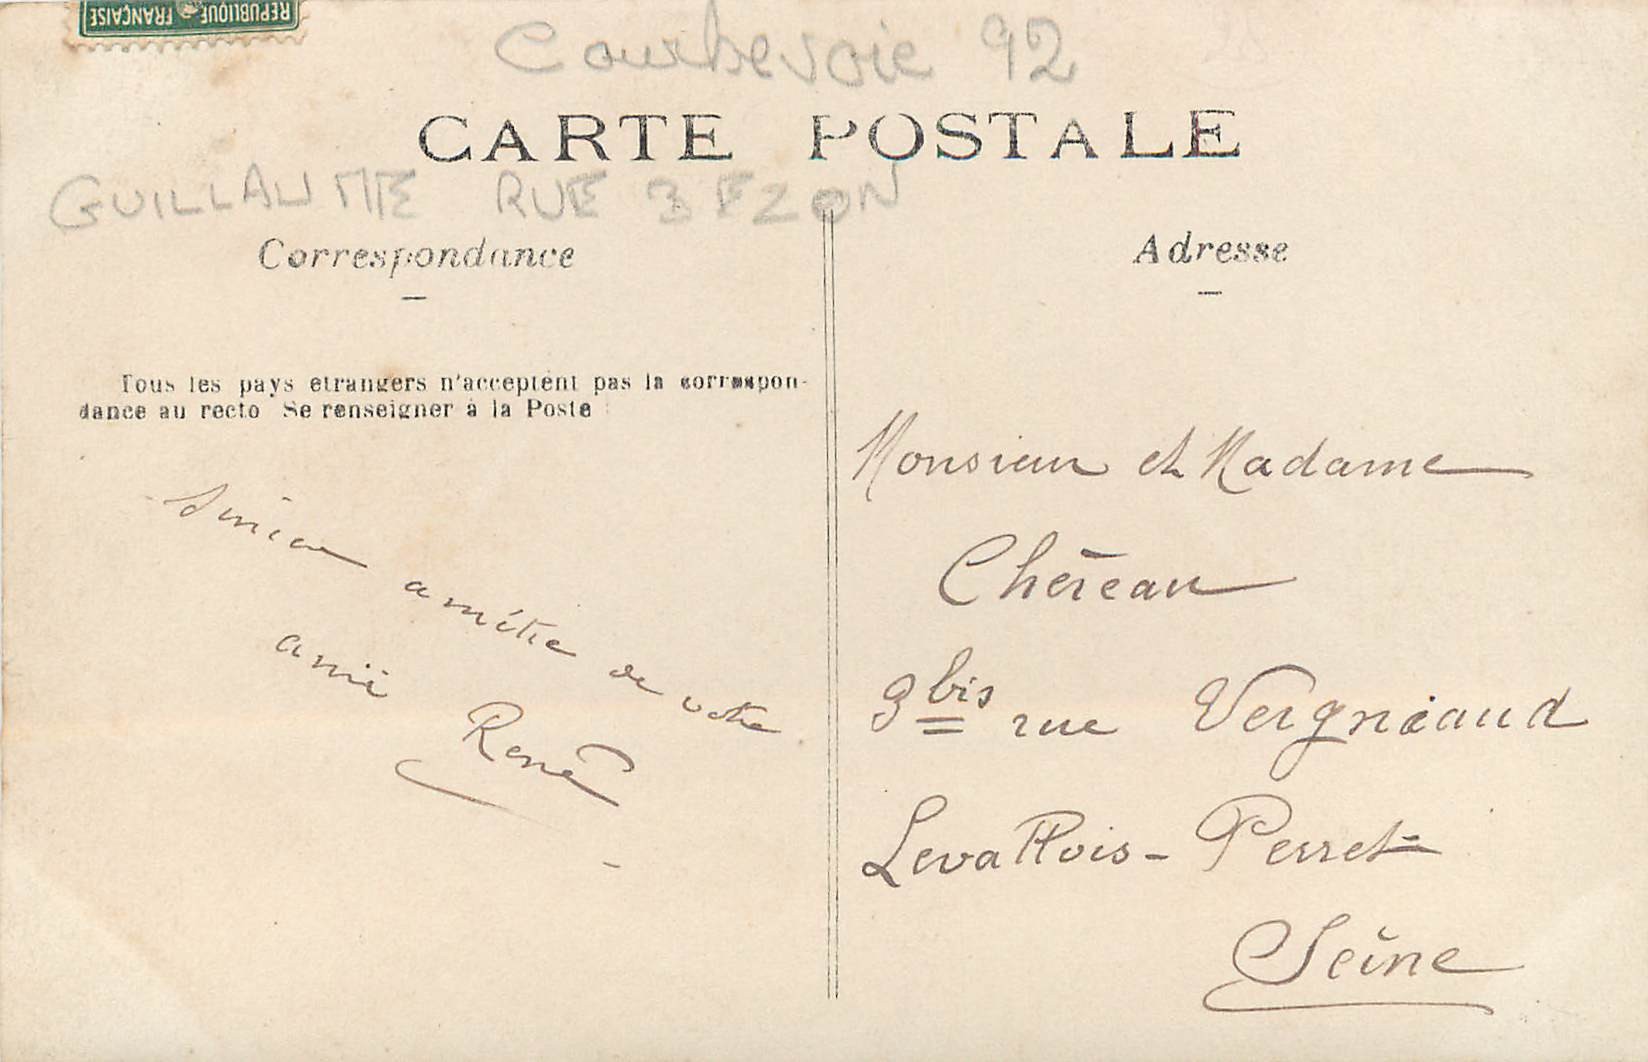 RÉPUBLIQUE FRANÇAISE
Courbevoie 92
CARTE POSTALE
GUILLAUME RUE BEZON
Correspondance
Tous les pays étrangers n'acceptent pas la correspon-
dance au recto Se renseigner à la Poste
amitié de votre
ami
René
Adresse
Monsieur et Madame
Chéreau
9 bis rue Vergniaud
Levallois - Perret
Seine